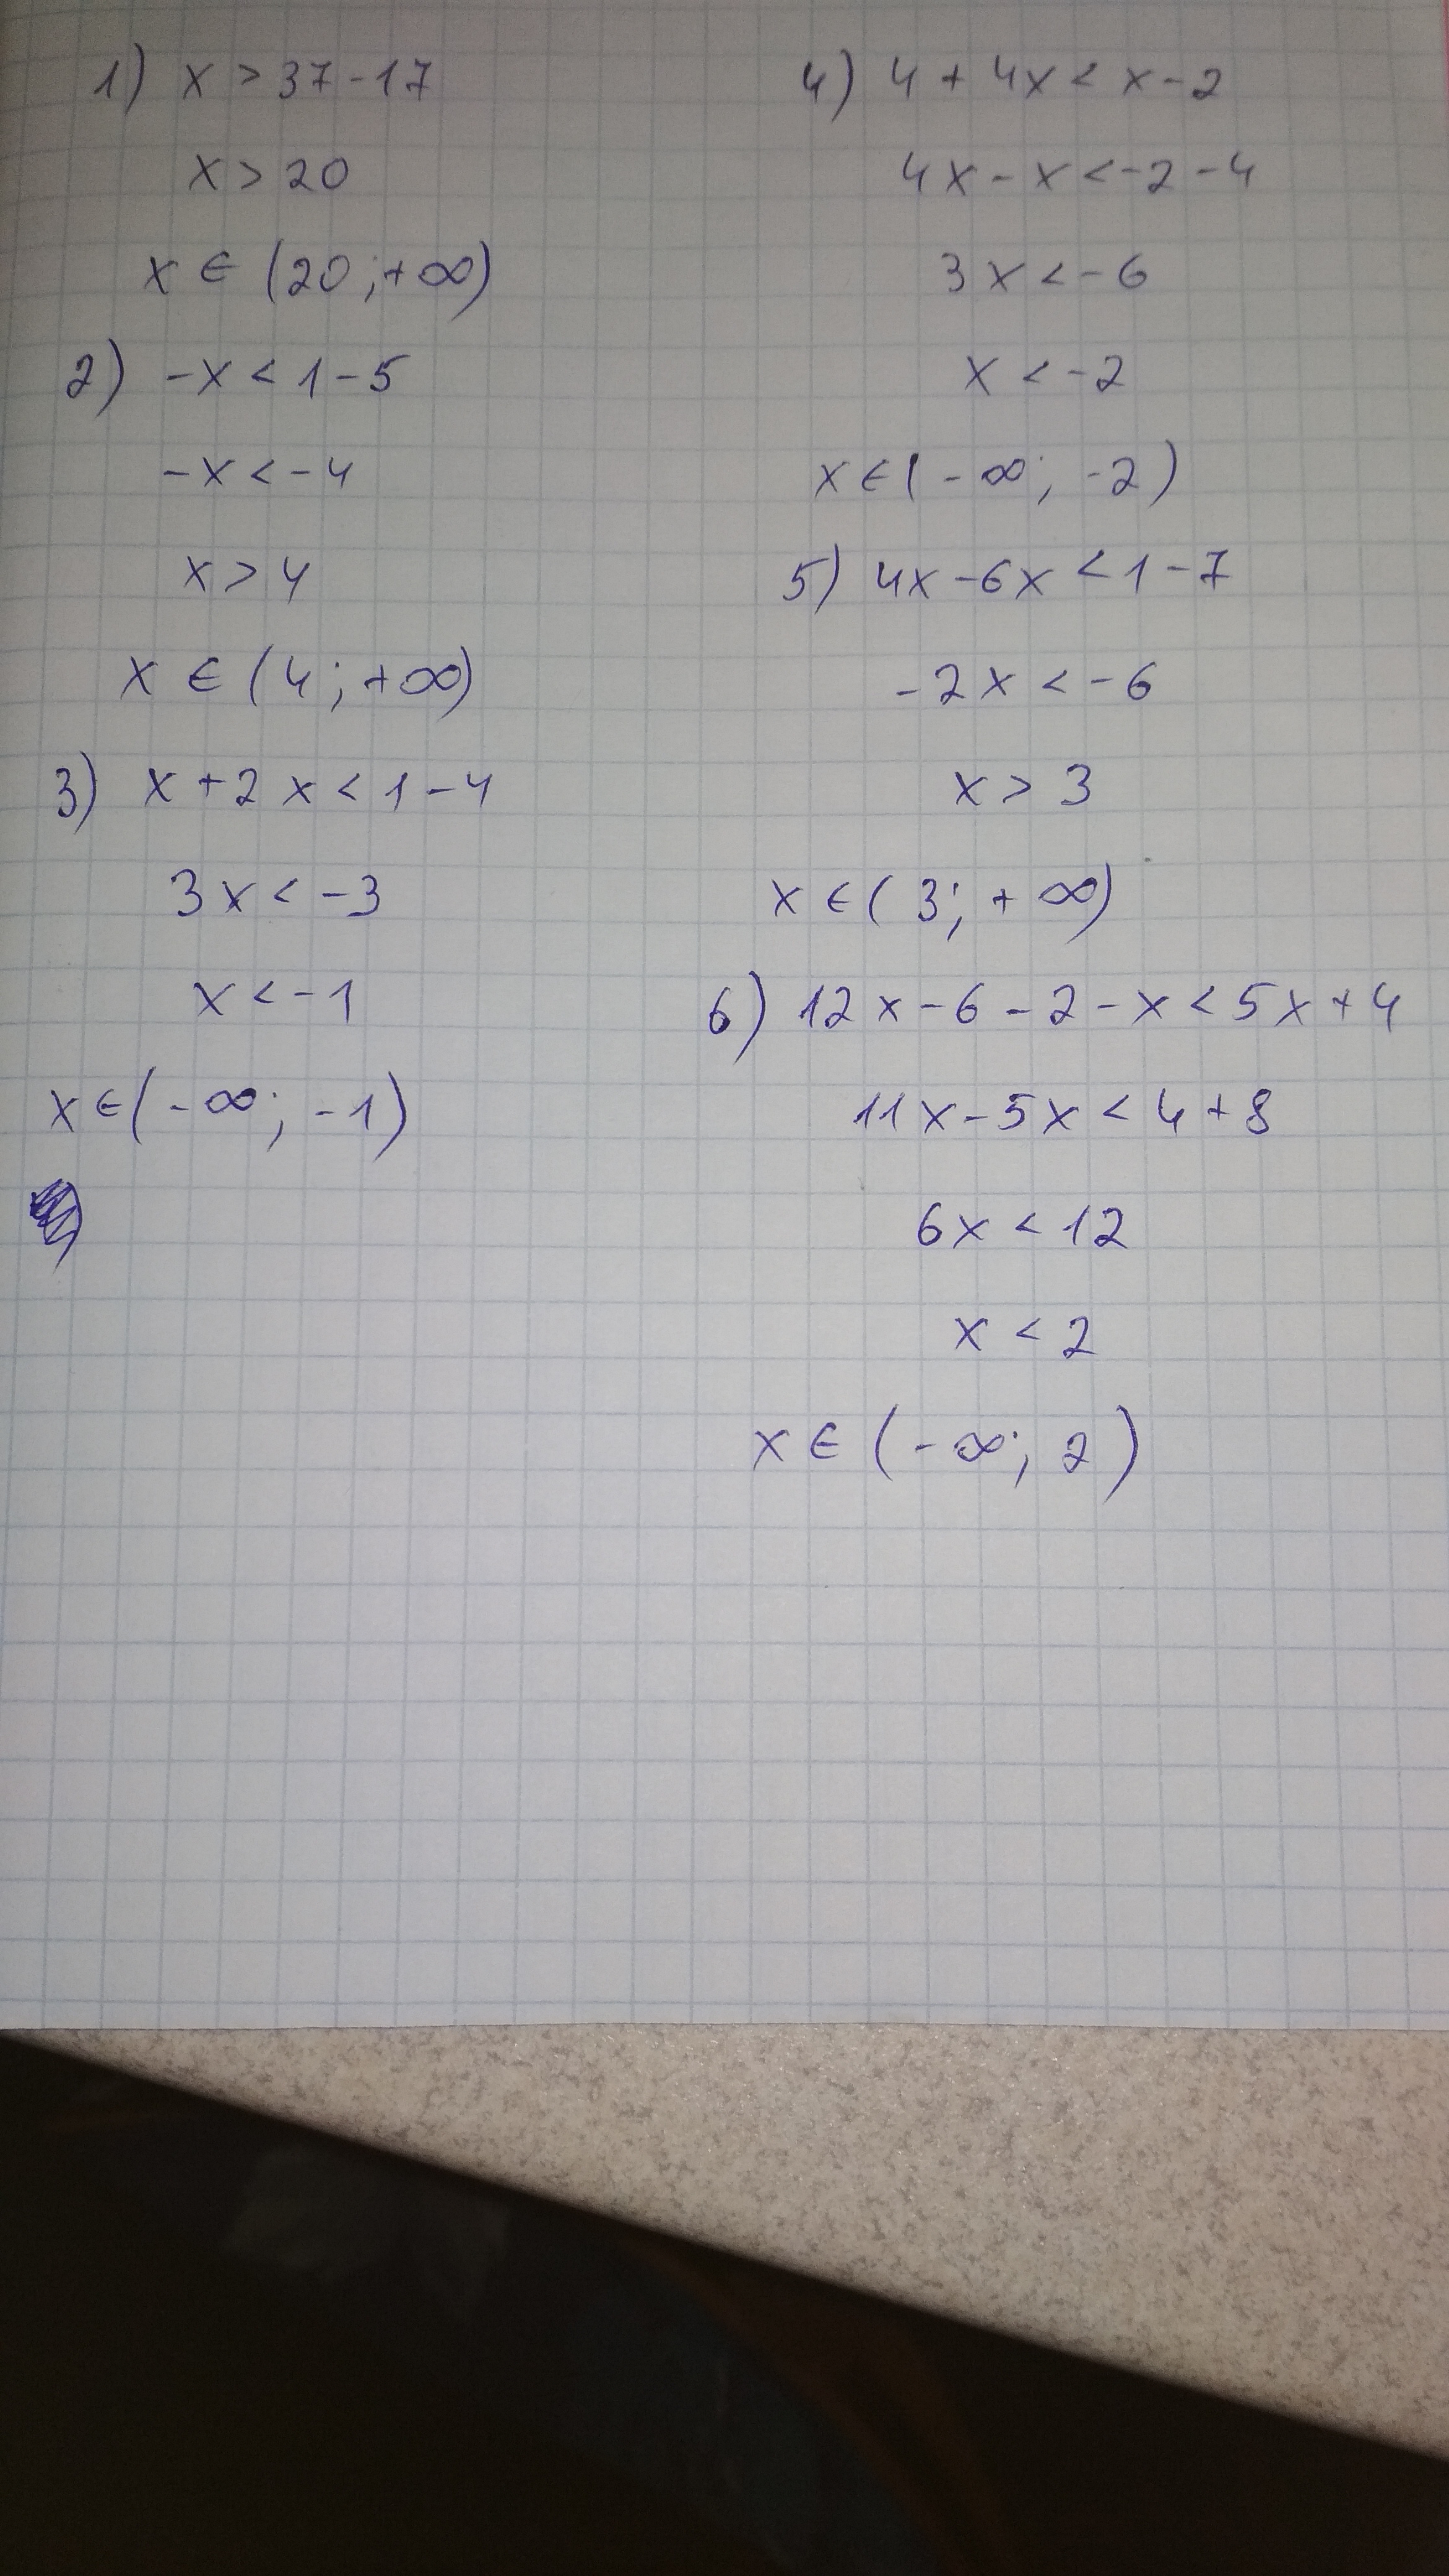 1) x > 37 - 17
x > 20
x ∈ (20; +∞)
2) -x < 1 - 5
-x < -4
x > 4
x ∈ (4; +∞)
3) x + 2x < 1 - 4
3x < -3
x < -1
x ∈ (-∞; -1)
4) 4 + 4x < x - 2
4x - x < -2 - 4
3x < -6
x < -2
x ∈ (-∞; -2)
5) 4x - 6x < 1 - 7
-2x < -6
x > 3
x ∈ (3; +∞)
6) 12x - 6 - 2 - x < 5x + 4
11x - 5x < 4 + 8
6x < 12
x < 2
x ∈ (-∞; 2)